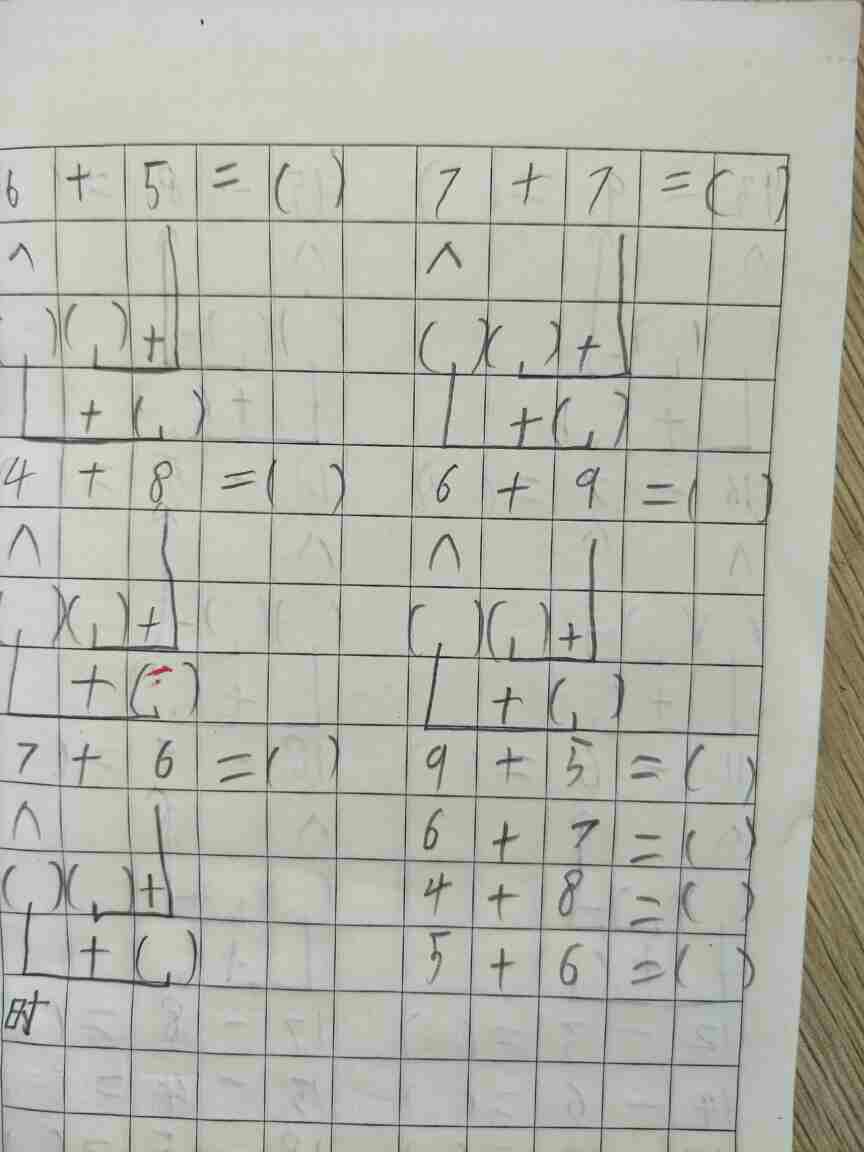 6 + 5 = ( ) 7 + 7 = ( )
^ ^
( )( ) + ( )( ) +
+ ( ) + ( )
4 + 8 = ( ) 6 + 9 = ( )
^ ^
( )( ) + ( )( ) +
+ ( ) + ( )
7 + 6 = ( ) 9 + 5 = ( )
^ 6 + 7 = ( )
( )( ) + 4 + 8 = ( )
+ ( ) 5 + 6 = ( )
时